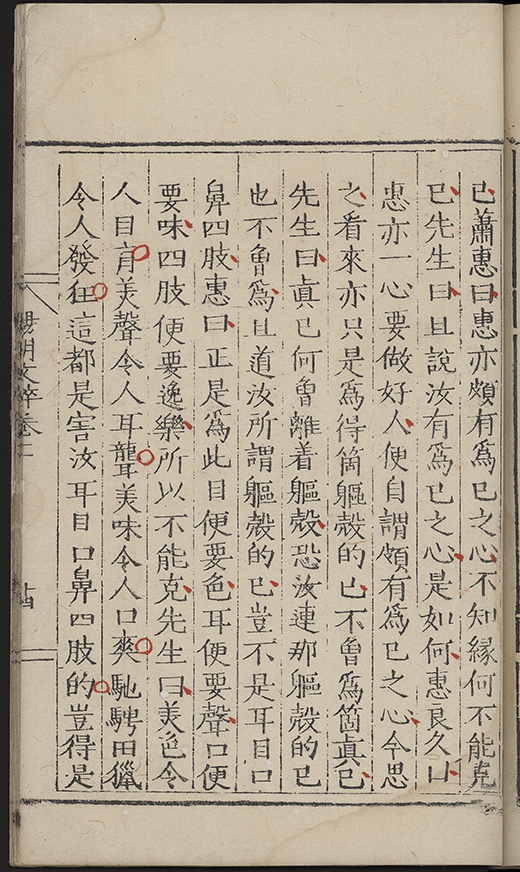 己蕭惠曰惠亦頗有爲已之心不知緣何不能克
已先生曰且說汝有爲已之心是如何惠良久曰
惠亦一心要做好人便自謂頗有爲已之心今思
之看來亦只是爲得箇軀殼的已不曾爲箇真已
先生曰真已何曾離着軀殼恐汝連那軀殼的已
也不曾爲且道汝所謂軀殼的已豈不是耳目口
鼻四肢惠曰正是爲此目便要色耳便要聲口便
要味四肢便要逸樂所以不能克先生曰美色令
人目盲美聲令人耳聾美味令人口爽馳騁田獵
令人發狂這都是害汝耳目口鼻四肢的豈得是
陽明文粹卷二